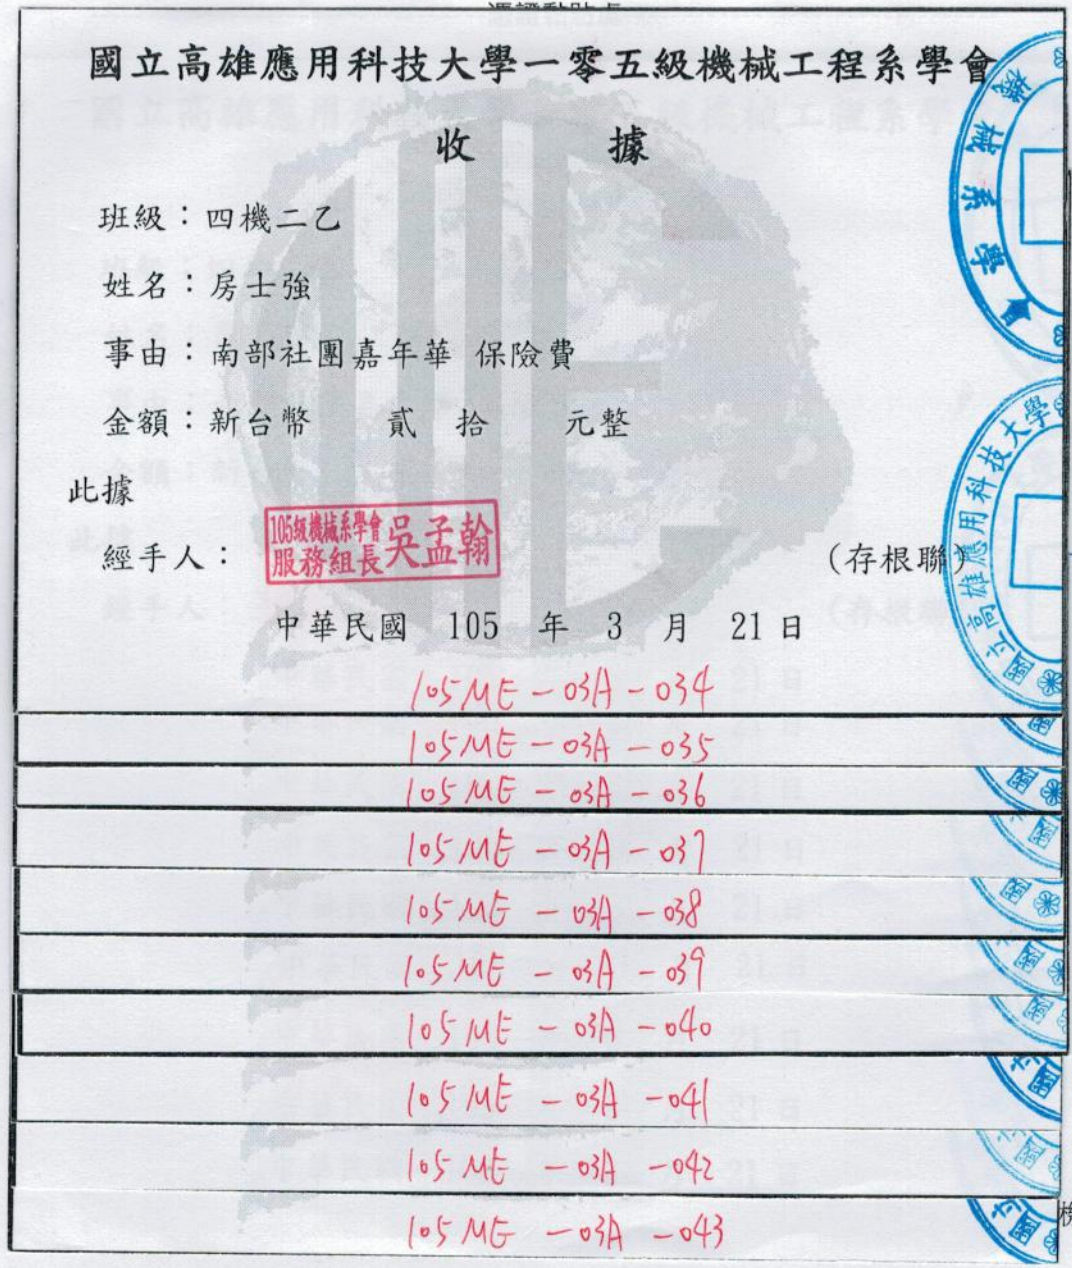 憑證黏貼處
國立高雄應用科技大學一零五級機械工程系學會
收 據
班級：四機二乙
姓名：房士強
事由：南部社團嘉年華 保險費
金額：新台幣 貳 拾 元整
此據
經手人：
105級機械系學會
服務組長
吳孟翰
(存根聯)
中華民國 105 年 3 月 21 日
機械系學會
國立高雄應用科技大學
105ME-03A-034
105ME-03A-035
105ME-03A-036
105ME-03A-037
105ME-03A-038
105ME-03A-039
105ME-03A-040
105ME-03A-041
105ME-03A-042
105ME-03A-043